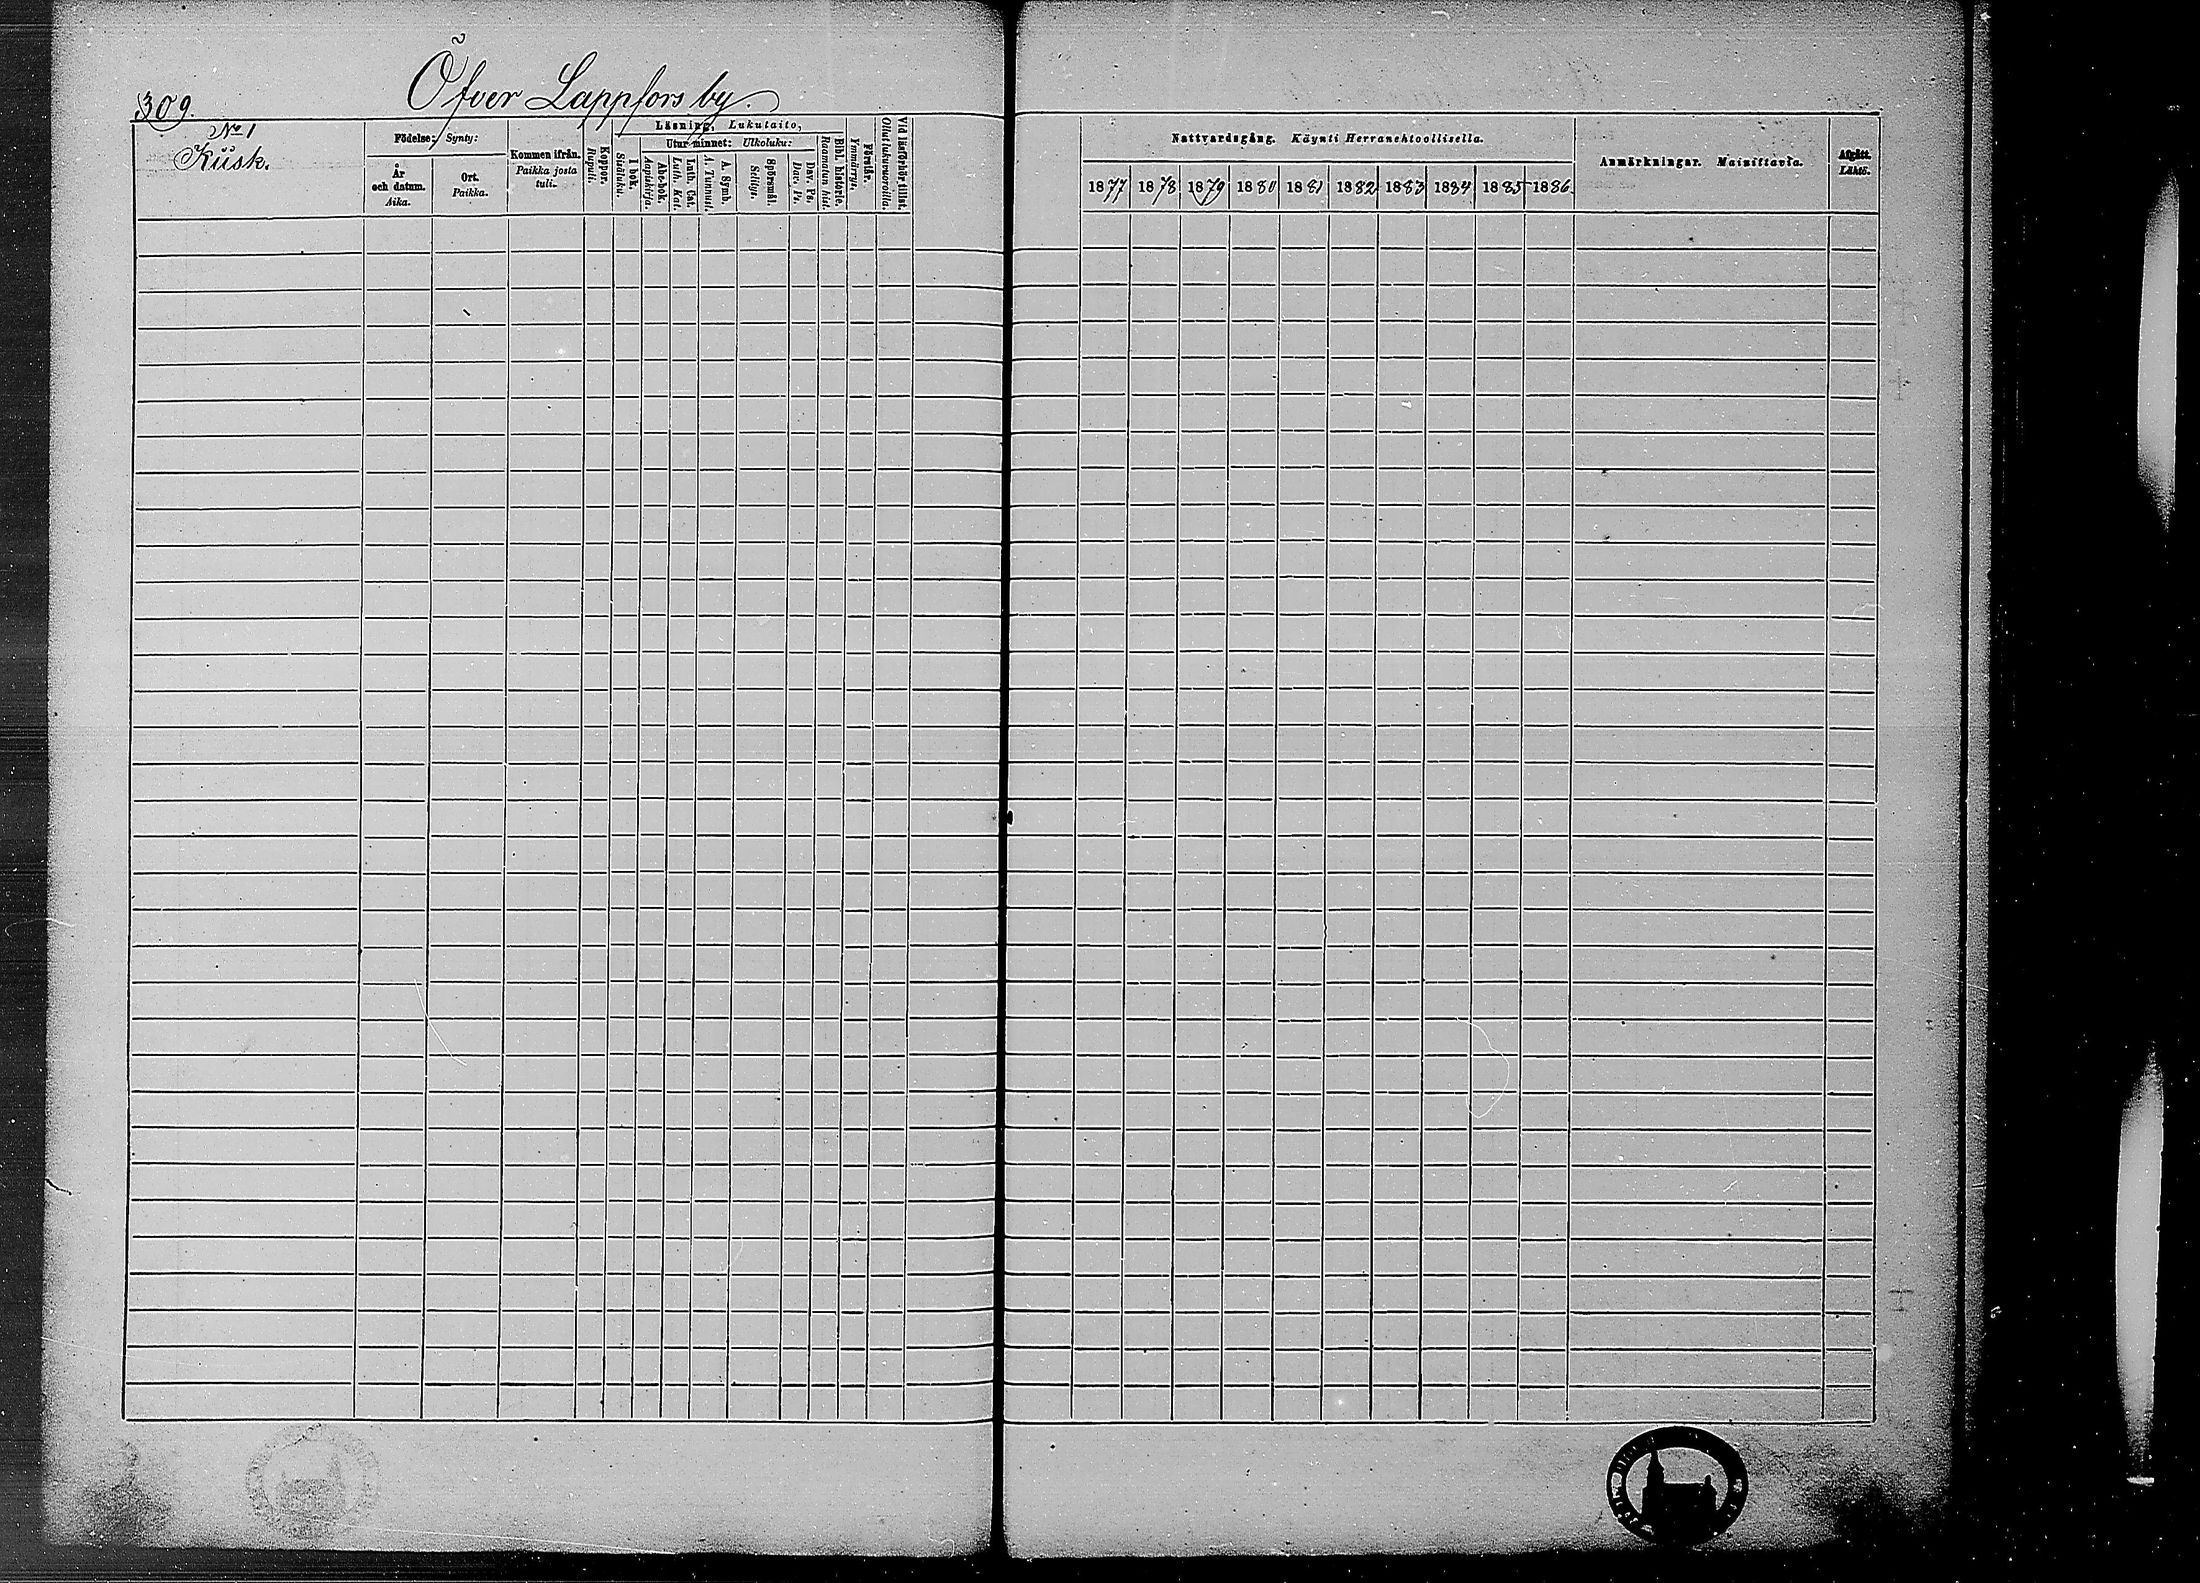 Öfver Lappfors by.
309.
No 1
Kusk.
Födelse: Synty:
År och datum. Aika.
Ort. Paikka.
Kommen ifrån. Paikka josta tuli.
Koppor. Rupuli.
Läsning, Lukutaito,
I bok. Sisäluku.
Utur minnet: Ulkoluku:
Abc-bok. Aapiskirja.
Luth. Cat. Luth. Kat.
A. Symb. A. Tunnust.
Spörsmål. Selitys.
Dav. Ps. Dav. Ps.
Bibl. historie. Raamatun hist.
Förstår. Ymmärrys.
Vid läsförhör tillst. Ollut lukuvuoroilla.
Nattvardsgång. Käynti Herranehtoollisella.
1877 1878 1879 1880 1881 1882 1883 1884 1885 1886
Anmärkningar. Mainittavia.
Afgått. Lähtö.